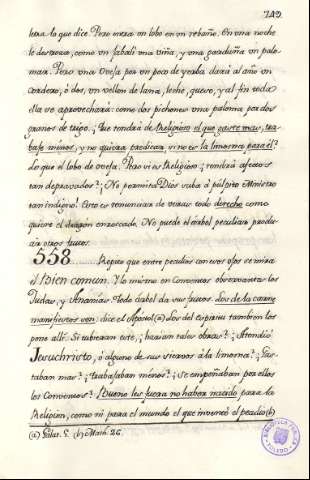 249
tera lo que dice. Pero mira un lobo en un rebaño. En una noche
le destroza, como un Jabali una viña, y una garduña un palo-
mar. Pero una Oveja por un poco de yerba dará al año un
cordero, ó dos, un vellon de lana, leche, queso, y al fin toda
ella se aprovechará: como dos pichones una paloma por dos
granos de trigo. ¿Que tendrá de Religioso el que gaste mas, tra-
baje ménos, y no quiera predicar si no es la limosna para él?
Lo que el lobo de oveja. Pero si es Religioso: ¿tendrá afectos
tan depravados? ¡No permita Dios suba á púlpito Ministro
tan indigno! Esto es renunciar de veras todo derecho como
quiere el dragón enroscado. No puede el árbol peculiar produ-
cir otros frutos.
558. Repito que entre peculio en esos ojos se mira
el Bien comun. Y lo mismo en Conventos observantes los
Judas, y Ananías. Todo árbol da sus frutos. Los de la carne
manifiestos son: dice el Apóstol (a) Los del espíritu tambien los
pone allí. Si tubieran este, ¿harian tales obras? ¿Atendió
Jesuchristo, ó alguno de sus siervos á la limosna? ¿Gas-
taban mas? ¿trabajaban ménos? ¿se empeñaban por ellos
los Conventos? Bueno les fuera no haber nacido para la
Religion, como ni para el mundo el que inventó el peculio (b)
(a) Galat. 5. (b) Math. 26.
BIBLIOTECA
TOLEDO